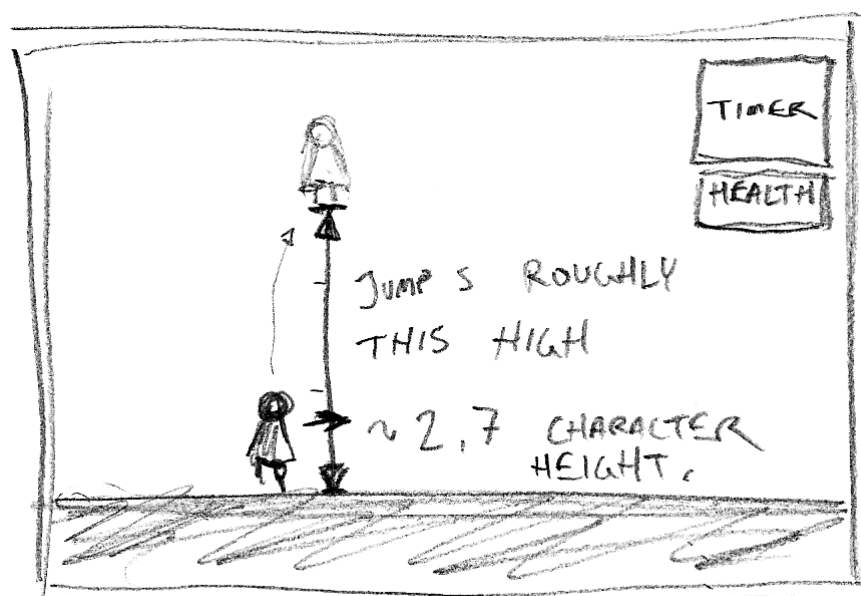 TIMER
HEALTH
JUMP S ROUGHLY
THIS HIGH
~ 2,7 CHARACTER
HEIGHT.